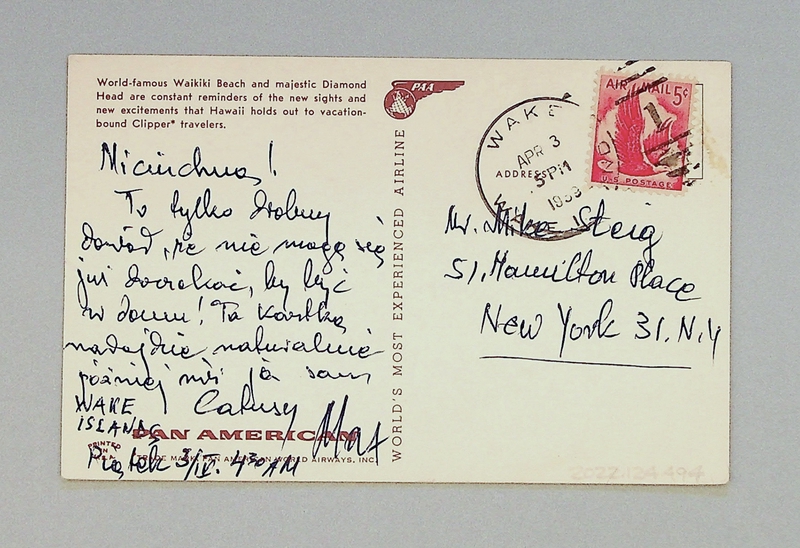 World-famous Waikiki Beach and majestic Diamond
Head are constant reminders of the new sights and
new excitements that Hawaii holds out to vacation-
bound Clipper* travelers.
To tylko drobny
dowód, że nie mogę się
już doczekać, by być
w domu! Ta kartka
nadejdzie naturalnie
później niż ja sam
Całusy
WAKE
ISLAND
Piątek 3/IV. 4 30 AM
PRINTED
IN
PAN AMERICAN
TRADE MARK, PAN AMERICAN WORLD AIRWAYS, INC.
WORLD'S MOST EXPERIENCED AIRLINE
PAA
ADDRESS
WAKE
APR 3
5 PM
AIR MAIL 5¢
U.S. POSTAGE
Mr. Mike Steig
51, Hamilton Place
New York 31. N.Y
2022.124.494